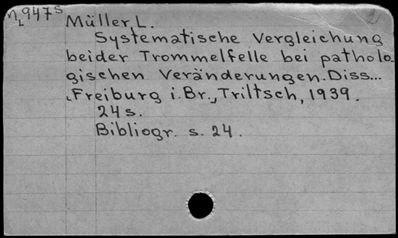 n 947s
Müller, L.
Systematische Vergleichung
beider Trommelfelle bei patholo-
gischen Veränderungen. Diss...
Freiburg i. Br., Triltsch, 1939.
24 s.
Bibliogr. s. 24.